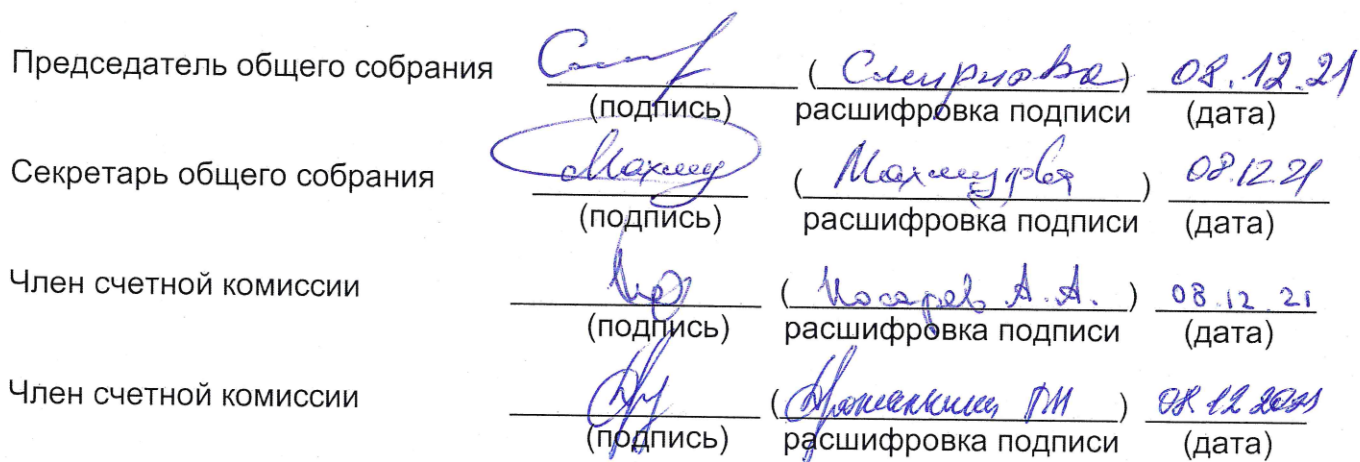 Председатель общего собрания ( Смирнова ) 08.12.21
(подпись) расшифровка подписи (дата)
Секретарь общего собрания ( ) 08.12.21
(подпись) расшифровка подписи (дата)
Член счетной комиссии ( А.А. ) 08.12.21
(подпись) расшифровка подписи (дата)
Член счетной комиссии ( ) 08.12.2021
(подпись) расшифровка подписи (дата)